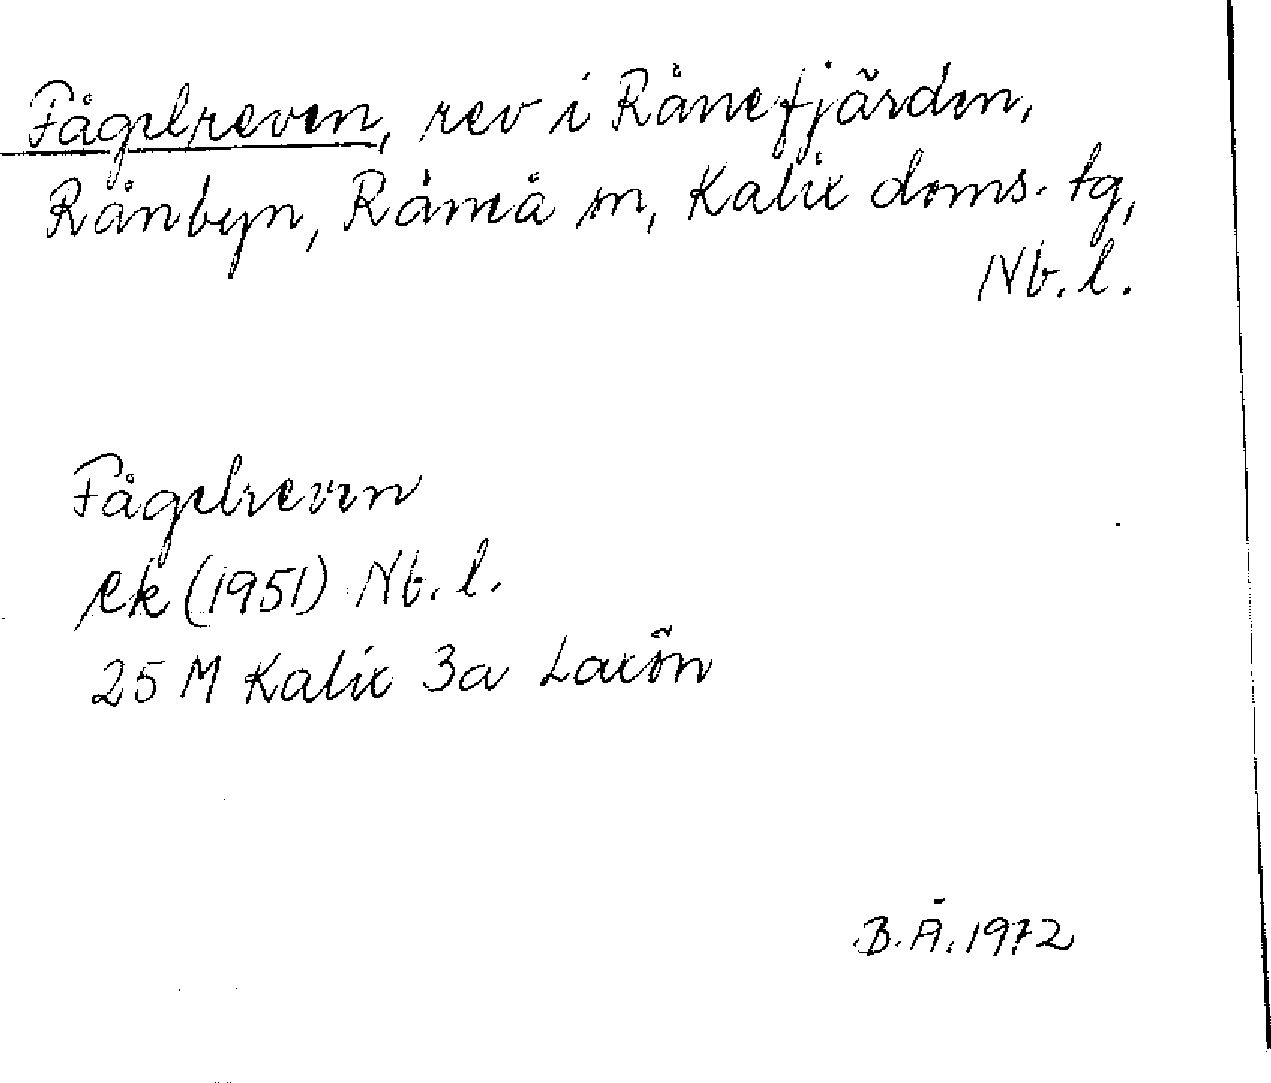 Fågelreven, rev i Rånefjärden,
Rånbyn, Råneå sn, Kalix doms. tg,
Nb. l.
Fågelreven
ek (1951) Nb. l.
25 M Kalix 3a Laxön
B. Ä. 1972